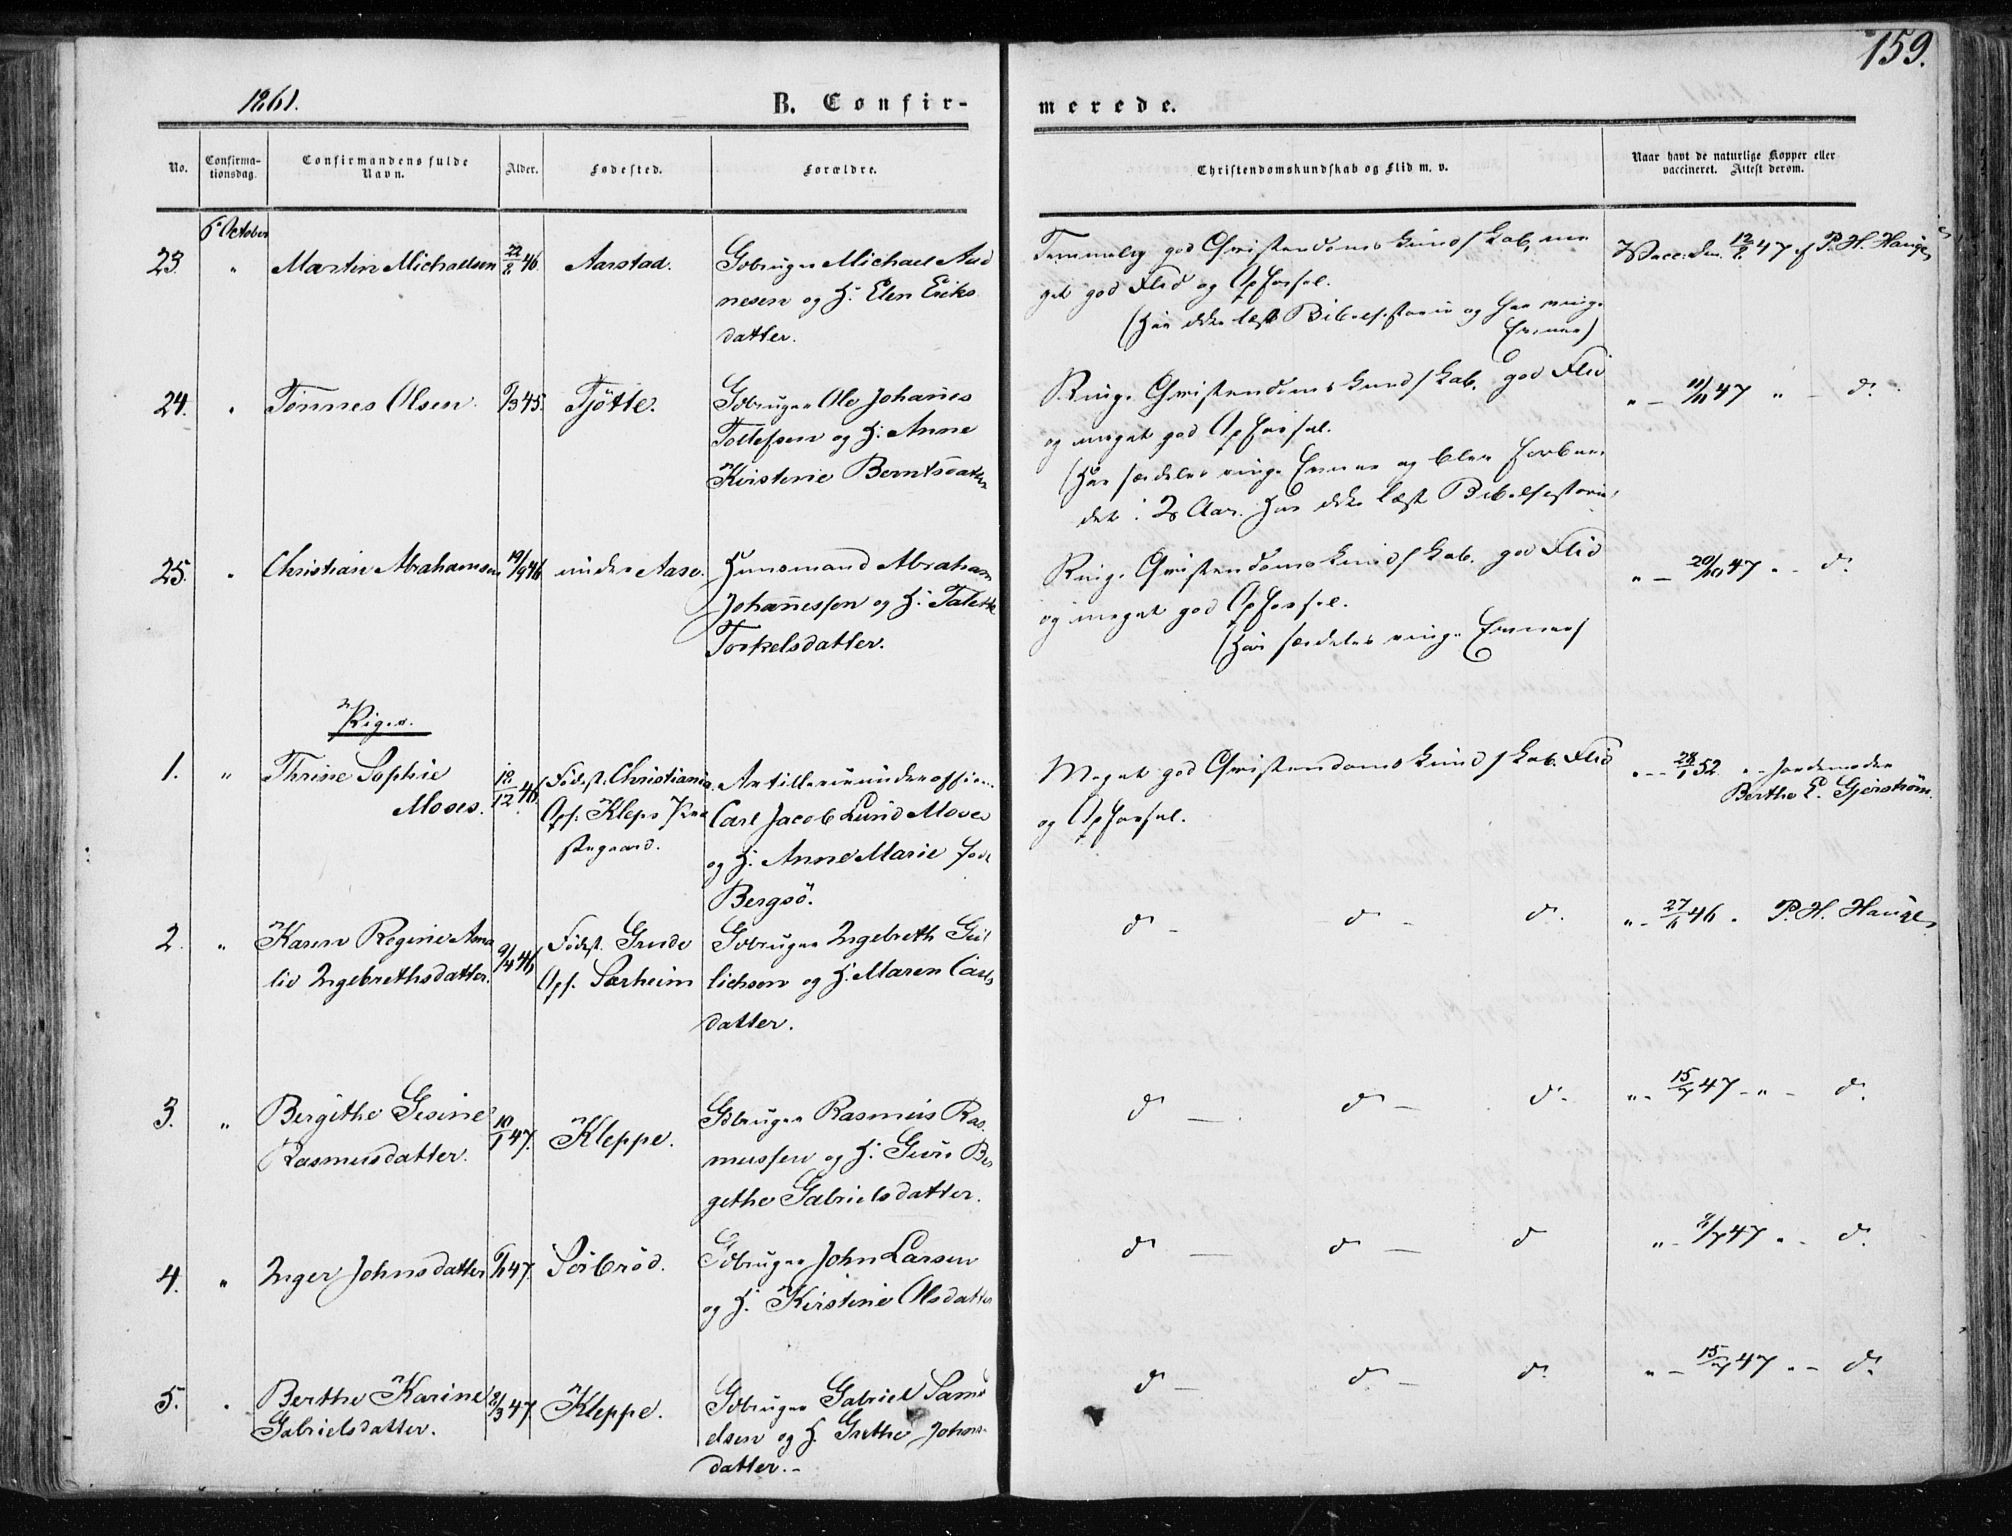 159.
1861.
B. Confir-
merede.
No.
Confirma-
tionsdag.
Confirmandens fulde
Navn.
Alder.
Fødested.
Forældre.
Christendomskundskab og Flid m. v.
Naar havt de naturlige Kopper eller
vaccineret. Attest derom.
6 October
23. " Martin Michaelsen 22/2 46. Aarstad. Gbruger Michael Aad
nesen og H. Elen Eriks
datter.
Temmelig god Christendomskundskab, me
get god Flid og Opførsel.
(Har ikke læst Bibelhistorie og har ringe
Evner)
Vacc. den 12/2 47 af P. H. Hauge
24. " Tønnes Olsen. 6/3 45. Tjötte. Gbruger Ole Johanes
Tollefsen og H. Anne
Kirstine Berntsdatter
Ringe Christendomskundskab. god Flid
og meget god Opførsel.
(Har særdeles ringe Evner og blev forbere
det i 2 Aar. Har ikke læst Bibelhistorie,
" — 11/11 47 " — d.
25. " Christian Abrahamsen 19/9 46 under Aase. Huusmand Abraham
Johanessen og H. Talette
Torkelsdatter.
Ringe Christendomskundskab. god Flid
og meget god Opførsel.
(Har særdeles ringe Evner)
" — 20/10 47 " - d.
Piger.
1. " Thrine Sophie
Moses. 12/12 46. Födest. Christiania.
Opf. Kleps Præ
stegaard.
Artillerieunderofficer
Carl Jacob Lund Moses
og H. Anne Marie fød
Bergsö.
Meget god Christendomskundskab. Flid
og Opførsel.
" - 28/1 52. " - Jordemoder
Berthe E. Gjerström.
2. " Karen Regine Ama
lie Ingebrethsdatter. 9/4 46 Födest. Grude
Opf. Særheim
Gbruger Ingebreth Gul
lichsen og H. Maren Carls
datter.
d - - d - d.
" - 27/6 46 " P. H. Hauge
3. " Bergithe Gesine
Rasmusdatter. 10/1 47. Kleppe. Gbruger Rasmus Ras
mussen og H. Guri Ber
gethe Gabrielsdatter.
d — d — d.
" - 15/7 47 - " - d.
4. " Inger Johnsdatter 6/1 47. Sörbröd. Gbruger John Larsen
og H. Kirstine Olsdatter
d — d — d
" - 8/7 47 " - d.
5. " Berthe Karine
Gabrielsdatter. 2/3 47. Kleppe. Gbruger Gabriel Samu
elsen og H. Grethe Johns-
datter. -
d - d. - d.
" - 15/7 47 " - d.